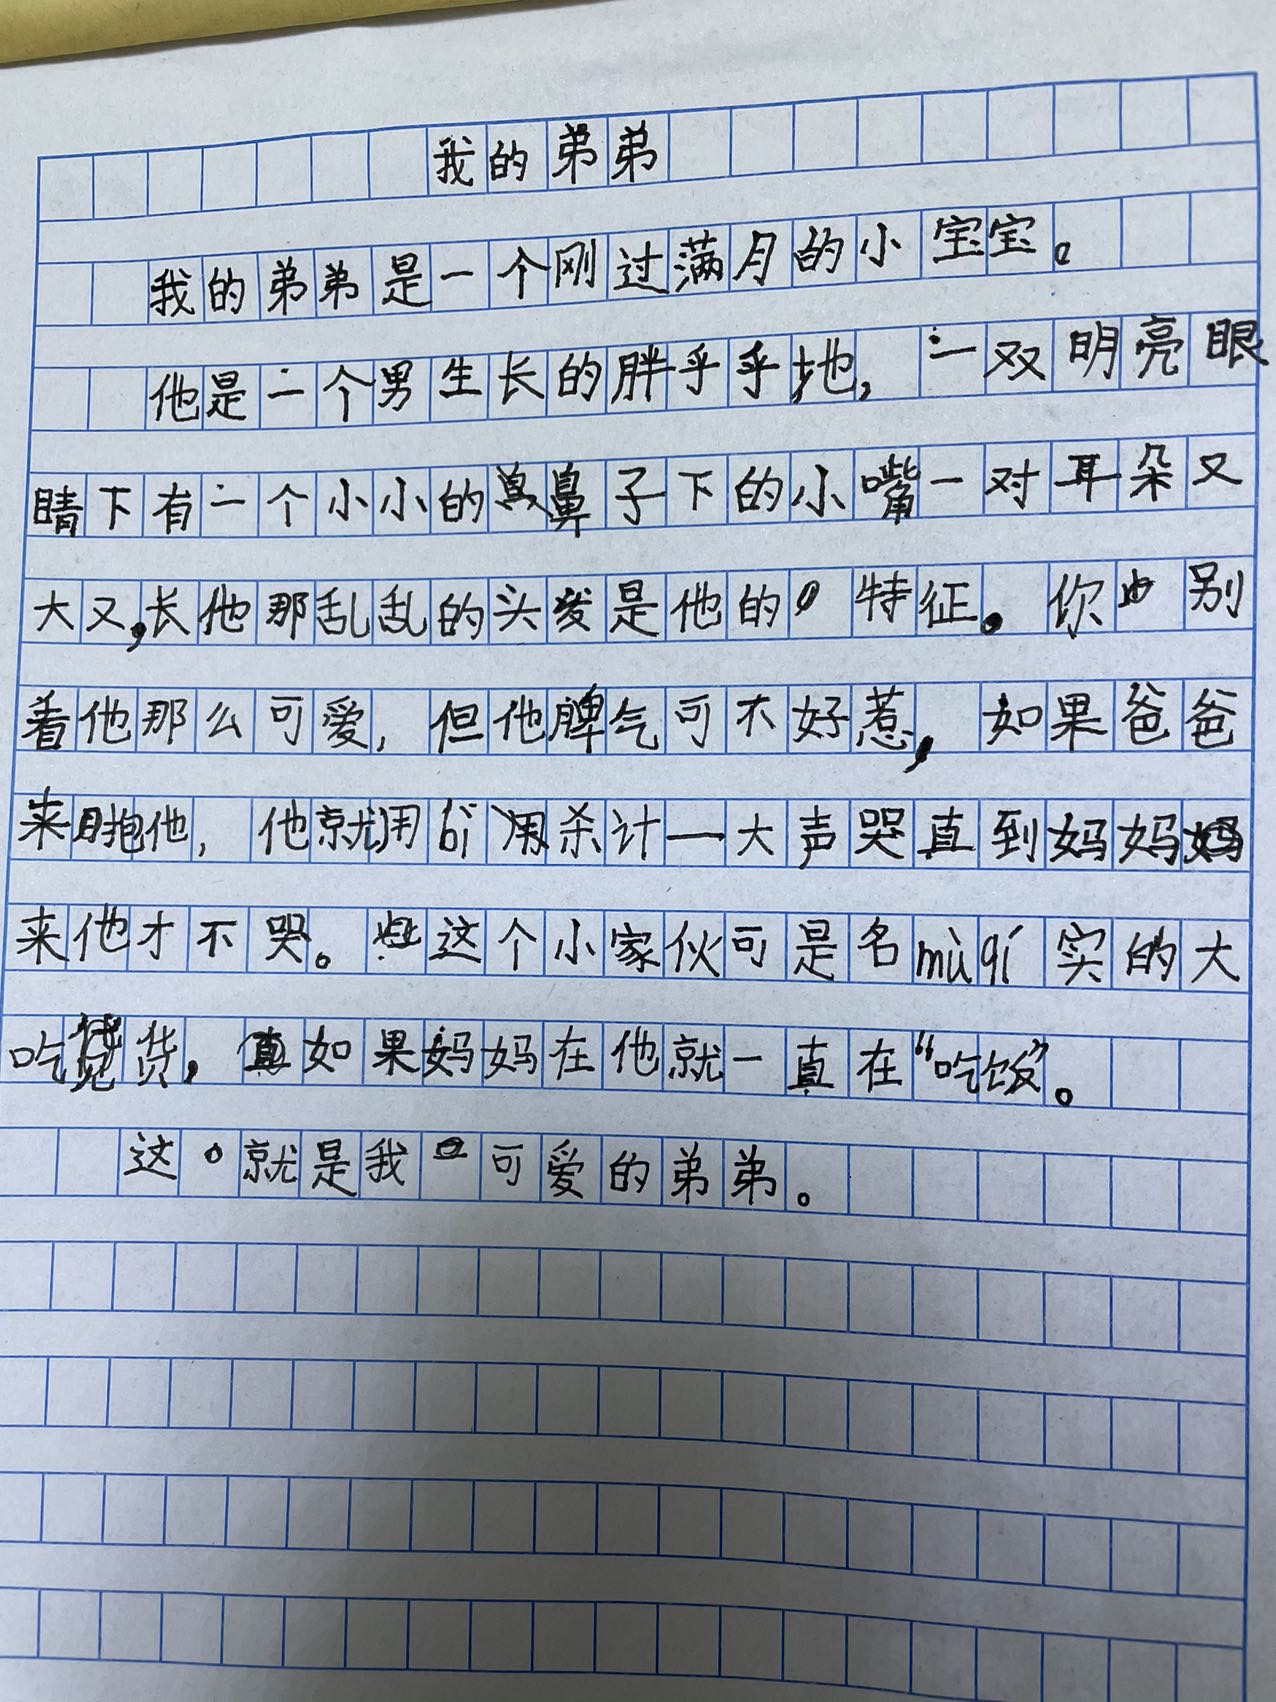 我的弟弟
我的弟弟是一个刚过满月的小宝宝。
他是一个男生长的胖乎乎地，一双明亮眼
睛下有一个小小的鼻子下的小嘴一对耳朵又
大又，长他那乱乱的头发是他的特征。你别
看他那么可爱，但他脾气可不好惹，如果爸爸
来抱他，他就用bì用杀计一大声哭直到妈妈
来他才不哭。这个小家伙可是名mùqí实的大
吃货，如果妈妈在他就一直在“吃饭”。
这就是我可爱的弟弟。